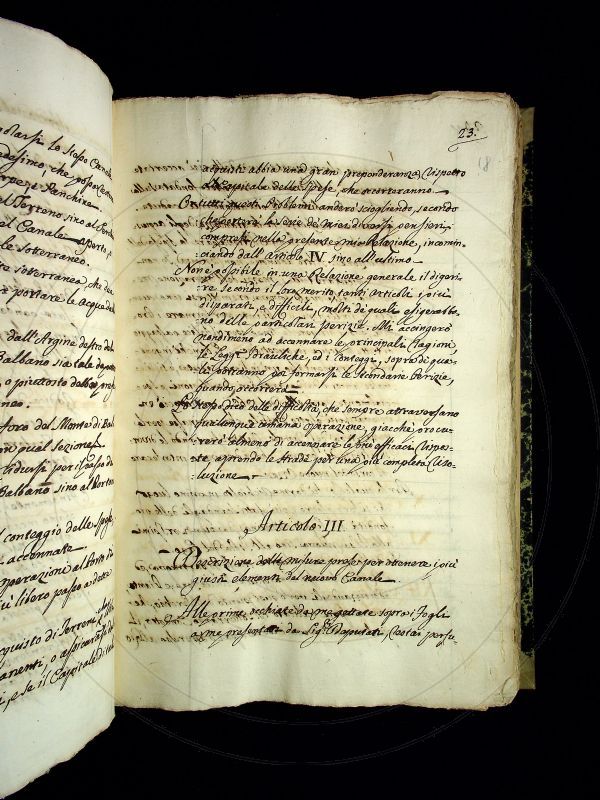 23.
18
acquisti abbia una gran preponderanza rispetto
al Capitale delle Spese, che occorreranno.
Or tutti questi Problemi anderò sciogliendo, secondo
che porterà la serie de' miei diversi pensieri,
compresi nella presente mia Relazione, incomin-
ciando dall'Articolo IV. sino all'ultimo.
Non è possibile in una Relazione generale il digeri-
re secondo il loro merito tanti Articoli i più
disparati, e difficili, molti de quali esigerebbe-
no delle particolari perizie. Mi accingerò
nondimeno ad accennare le principali Ragioni,
le Leggi Idrauliche, ed i Conteggi, sopra de qua-
li potranno poi formarsi le secondarie Perizie,
quando occorrerà
dirò delle difficoltà, che sempre attraversano
qualunque umana operazione, giacchè procu-
rerò almeno di accennare le più efficaci rispos-
te, aprendo le strade per una più completa riso-
luzione.
Articolo III
Descrizione delle misure prese per ottenere i più
giusti elementi del nuovo Canale
Alle prime occhiate da me gettate sopra i Fogli
a me presentati da Sig.ri Deputati, restai persu-
olarsi lo stesso Canale
edesimo, che
el Terreno sino al
el Canale aperto,
le sotterraneo.
sotterranea, che
portare le acque
dall'Argine destro del
Balbano sia tale da
o piuttosto
neo.
foro del Monte di Bal
qual sezione
ridursi per il passo di
Balbano sino al
conteggio delle Spese
accennate
operazione al Porto di
libero passo
quisto di Terreni,
nenti, o
e se il Capitale di tali